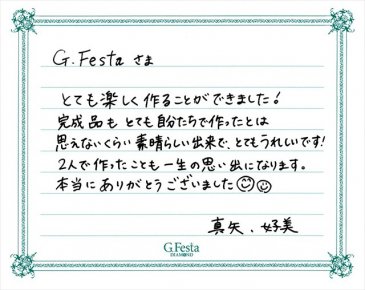 G.Festa さま
とても楽しく作ることができました!
完成品も とても自分たちで作ったとは
思えないくらい素晴らしい出来で、とてもうれしいです!
2人で作ったことも一生の思い出になります。
本当にありがとうございました
真矢、好美
G.Festa
DIAMOND